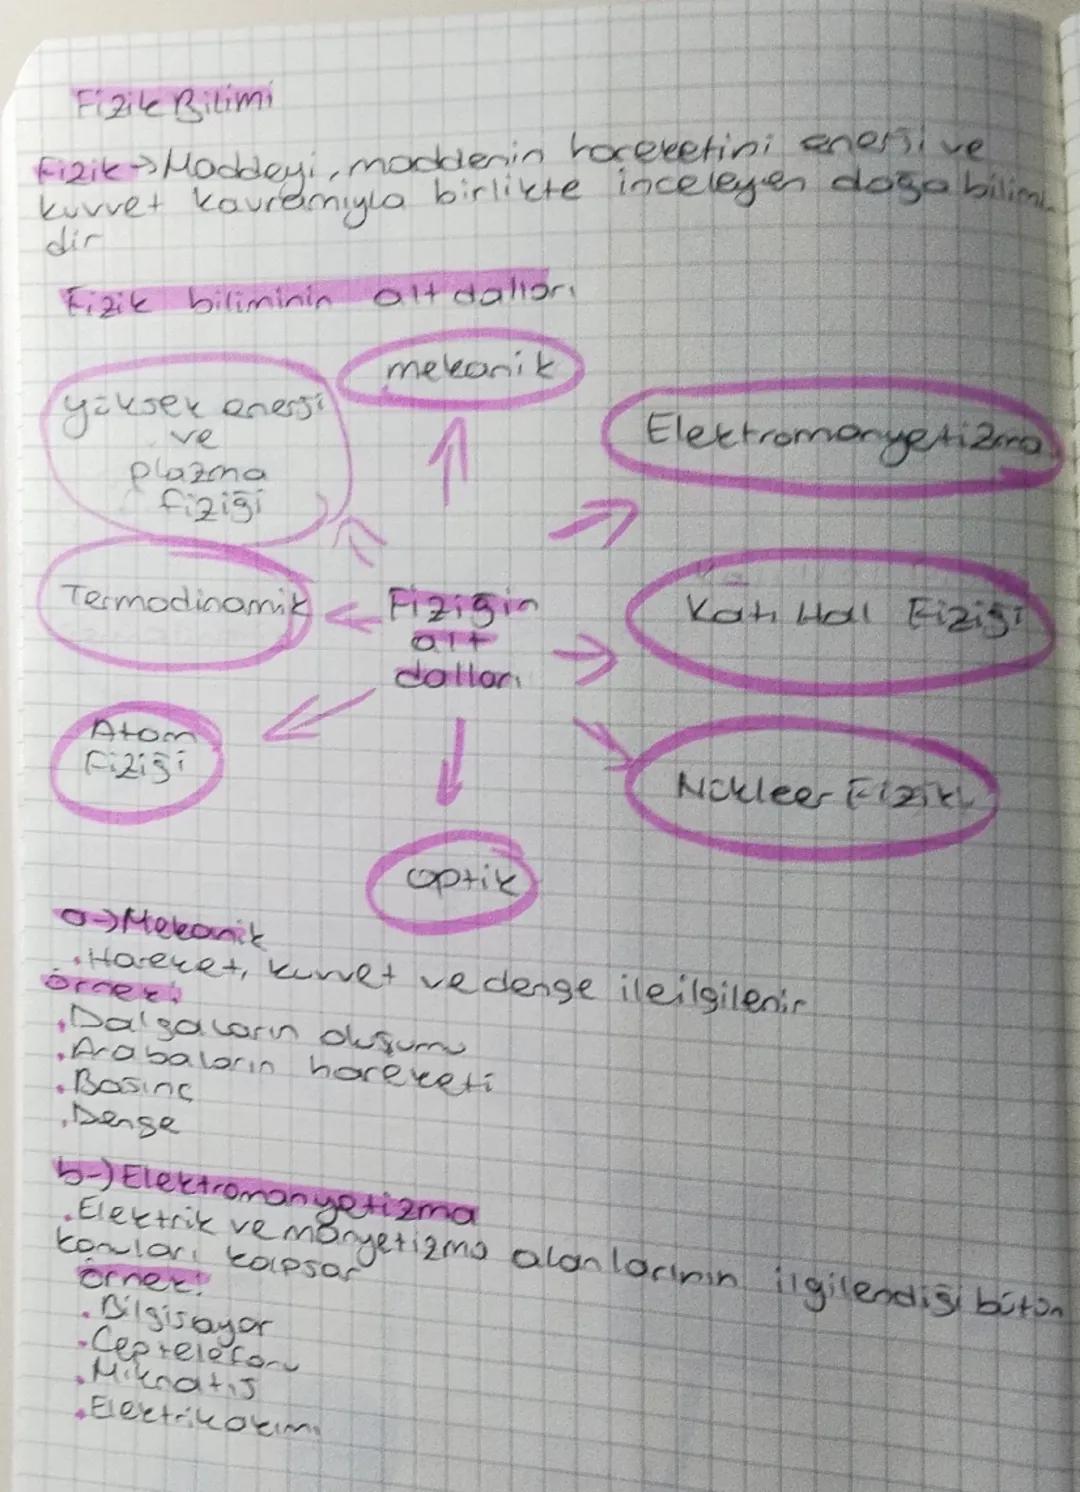 Fizik Bilimi
Fizik→Maddeyi, maddenin hareketini enerji ve
kuvvet kavramıyla birlikte inceleyen doğa bilimi
dir
Fizik biliminin alt dalları
mekanik
yüksek enerji
ve
plazma
fiziği
Elektromanyetizma
Termodinamik
Fiziğin
alt
dalları
Katı Hal Fiziği
Atom
Fiziği
Nükleer Fizik
optik
a→Mekanik
.Hareket, kuvvet ve denge ile ilgilenir
örnek:
.Dalgaların oluşumu
.Arabaların hareketi
.Basınç
.Denge
b-)Elektromanyetizma
.Elektrik ve manyetizma alanlarının ilgilendiği bütün
konuları kapsar
örnek:
.Bilgisayar
.Cep telefonu
.Mıknatıs
.Elektrik akımı